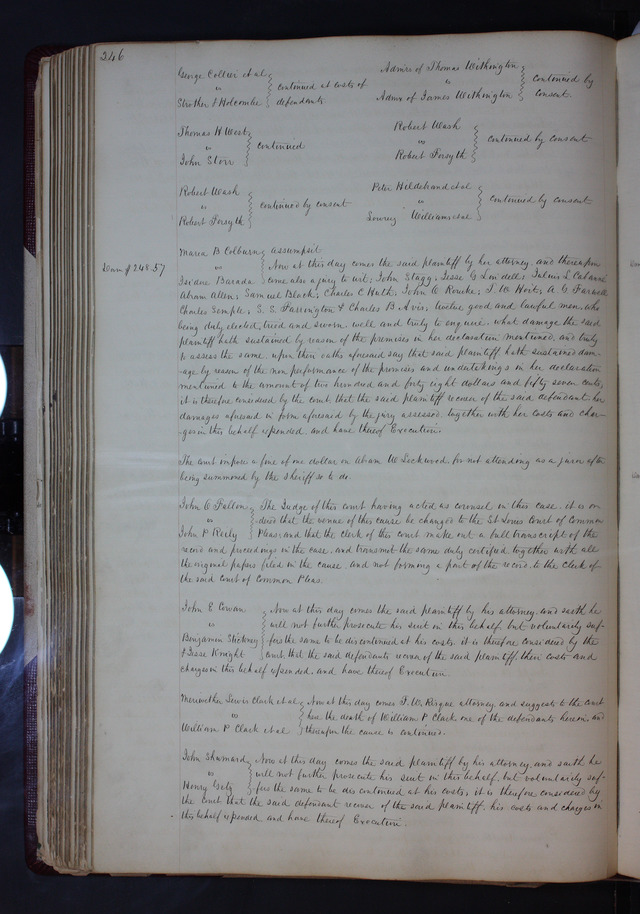 246
George Collier et al
vs
Strother & Holcombe
continued at costs of
defendants
Admrs of Thomas Withington
vs
Admr of James Withington
continued by
consent
Thomas H West
vs
John Storr
continued
Robert Wash
vs
Robert Forsyth
continued by consent
Robert Wash
vs
Robert Forsyth
continued by consent
Peter Hildebrand et al
vs
Lowrey Williams et al
continued by consent
Maria B Colburn assumpsit
Dam $248.57 vs Now at this day comes the said plaintiff by her attorney, and thereupon
Isidore Barada come also a jury to wit; John Stagg, Jesse G Lindell, Julius L Cabanné
Abram Allen, Samuel Black, Charles C Huth, John C Rourke, J. W Hoit, A. G Farwell
Charles Semple, S. S. Farrington & Charles B Avis, twelve good and lawful men, who
being duly elected, tried and sworn, well and truly to enquire, what damage the said
plaintiff hath sustained by reason of the premises in her declaration mentioned, and truly
to assess the same, upon their oaths aforesaid say that said plaintiff hath sustained dam-
-age by reason of the non performance of the promises and undertakings in her declaration
mentioned to the amount of two hundred and forty eight dollars and fifty seven cents,
it is therefore considered by the court that the said plaintiff recover of the said defendant her
damages aforesaid in form aforesaid by the jury assessed, together with her costs and char-
-ges in this behalf expended, and have thereof Execution.
The court impose a fine of one dollar on Abram W Lockwood, for not attending as a juror after
being summoned by the sheriff so to do.
John O Fallon The Judge of this court having acted as counsel in this case, it is or-
vs dered that the venue of this cause be changed to the St Louis Court of Common
John P Reily Pleas, and that the clerk of this court make out a full transcript of the
record and proceedings in the case, and transmit the same duly certified, together with all
the original papers filed in the cause, and not forming a part of the record, to the clerk of
the said Court of Common Pleas.
John E Cowan Now at this day comes the said plaintiff by his attorney, and saith he
vs will not further prosecute his suit in this behalf, but voluntarily suf-
Benjamin Stickney fers the same to be discontinued at his costs, it is therefore considered by the
& Jesse Knight court, that the said defendants recover of the said plaintiff, their costs and
charges in this behalf expended, and have thereof Execution.
Meriwether Lewis Clark et al Now at this day comes F. W. Risque attorney, and suggests to the court
vs here the death of William P Clark one of the defendants herein, and
William P Clark et al thereupon the cause is continued.
John Shumard Now at this day comes the said plaintiff by his attorney, and saith he
vs will not further prosecute his suit in this behalf, but voluntarily suf-
Henry Getz fers the same to be discontinued at his costs, it is therefore considered by
the court that the said defendant recover of the said plaintiff, his costs and charges in
this behalf expended and have thereof Execution.